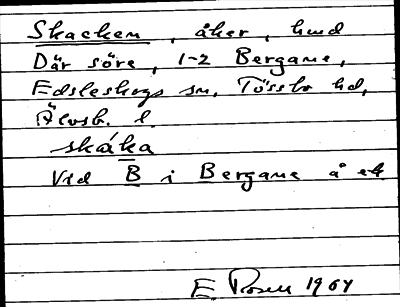 Skacken, åker, hmd
Där söre, 1-2 Bergane,
Edsleskogs sn, Tössbo hd,
Älvsb. l.
skáka
Vid B i Bergane å ek
E. Rosen 1964